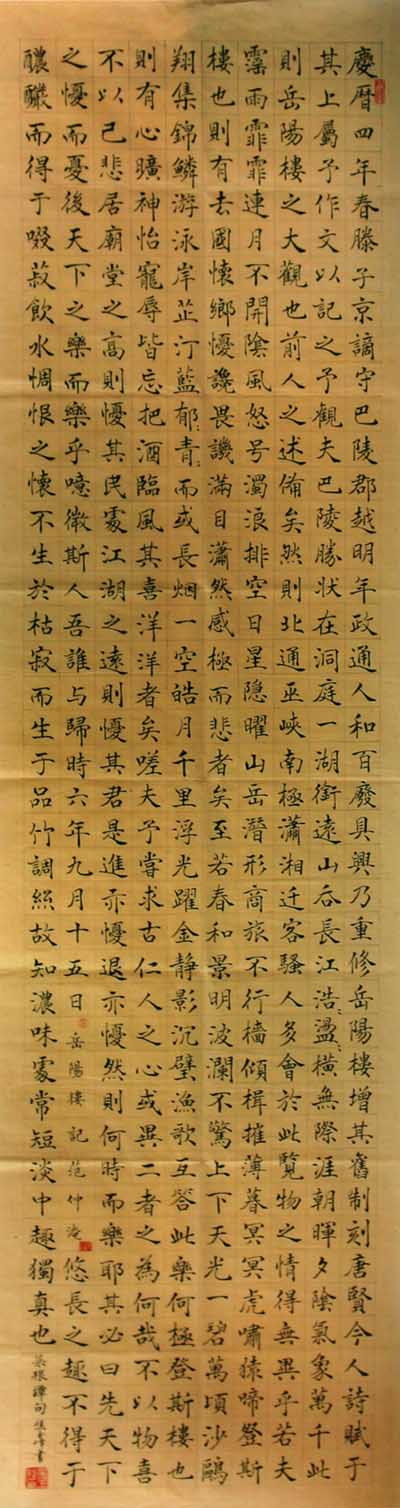 慶曆四年春滕子京謫守巴陵郡越明年政通人和百廢具興乃重修岳陽樓增其舊制刻唐賢今人詩賦于
其上屬予作文以記之予觀夫巴陵勝狀在洞庭一湖銜遠山吞長江浩:盪:橫無際涯朝暉夕陰氣象萬千此
則岳陽樓之大觀也前人之述備矣然則北通巫峽南極瀟湘遷客騷人多會於此覽物之情得無異乎若夫
霪雨霏霏連月不開陰風怒号濁浪排空日星隱曜山岳潛形商旅不行檣傾楫摧薄暮冥冥虎嘯猿啼登斯
樓也則有去國懷鄉憂讒畏譏滿目瀟然感極而悲者矣至若春和景明波瀾不驚上下天光一碧萬頃沙鷗
翔集錦鱗游泳岸芷汀藍郁:青:而或長烟一空皓月千里浮光躍金靜影沉璧漁歌互答此樂何極登斯樓也
則有心曠神怡寵辱皆忘把酒臨風其喜洋洋者矣嗟夫予嘗求古仁人之心或異二者之為何哉不以物喜
不以己悲居廟堂之高則憂其民處江湖之遠則憂其君是進亦憂退亦憂然則何時而樂耶其必曰先天下
之憂而憂後天下之樂而樂乎噫微斯人吾誰与歸時六年九月十五日 岳陽樓記范仲淹 悠長之趣不得于
醲釅而得于啜菽飲水惆恨之懷不生於枯寂而生于品竹調絲故知濃味處常短淡中趣獨真也 菜根譚句